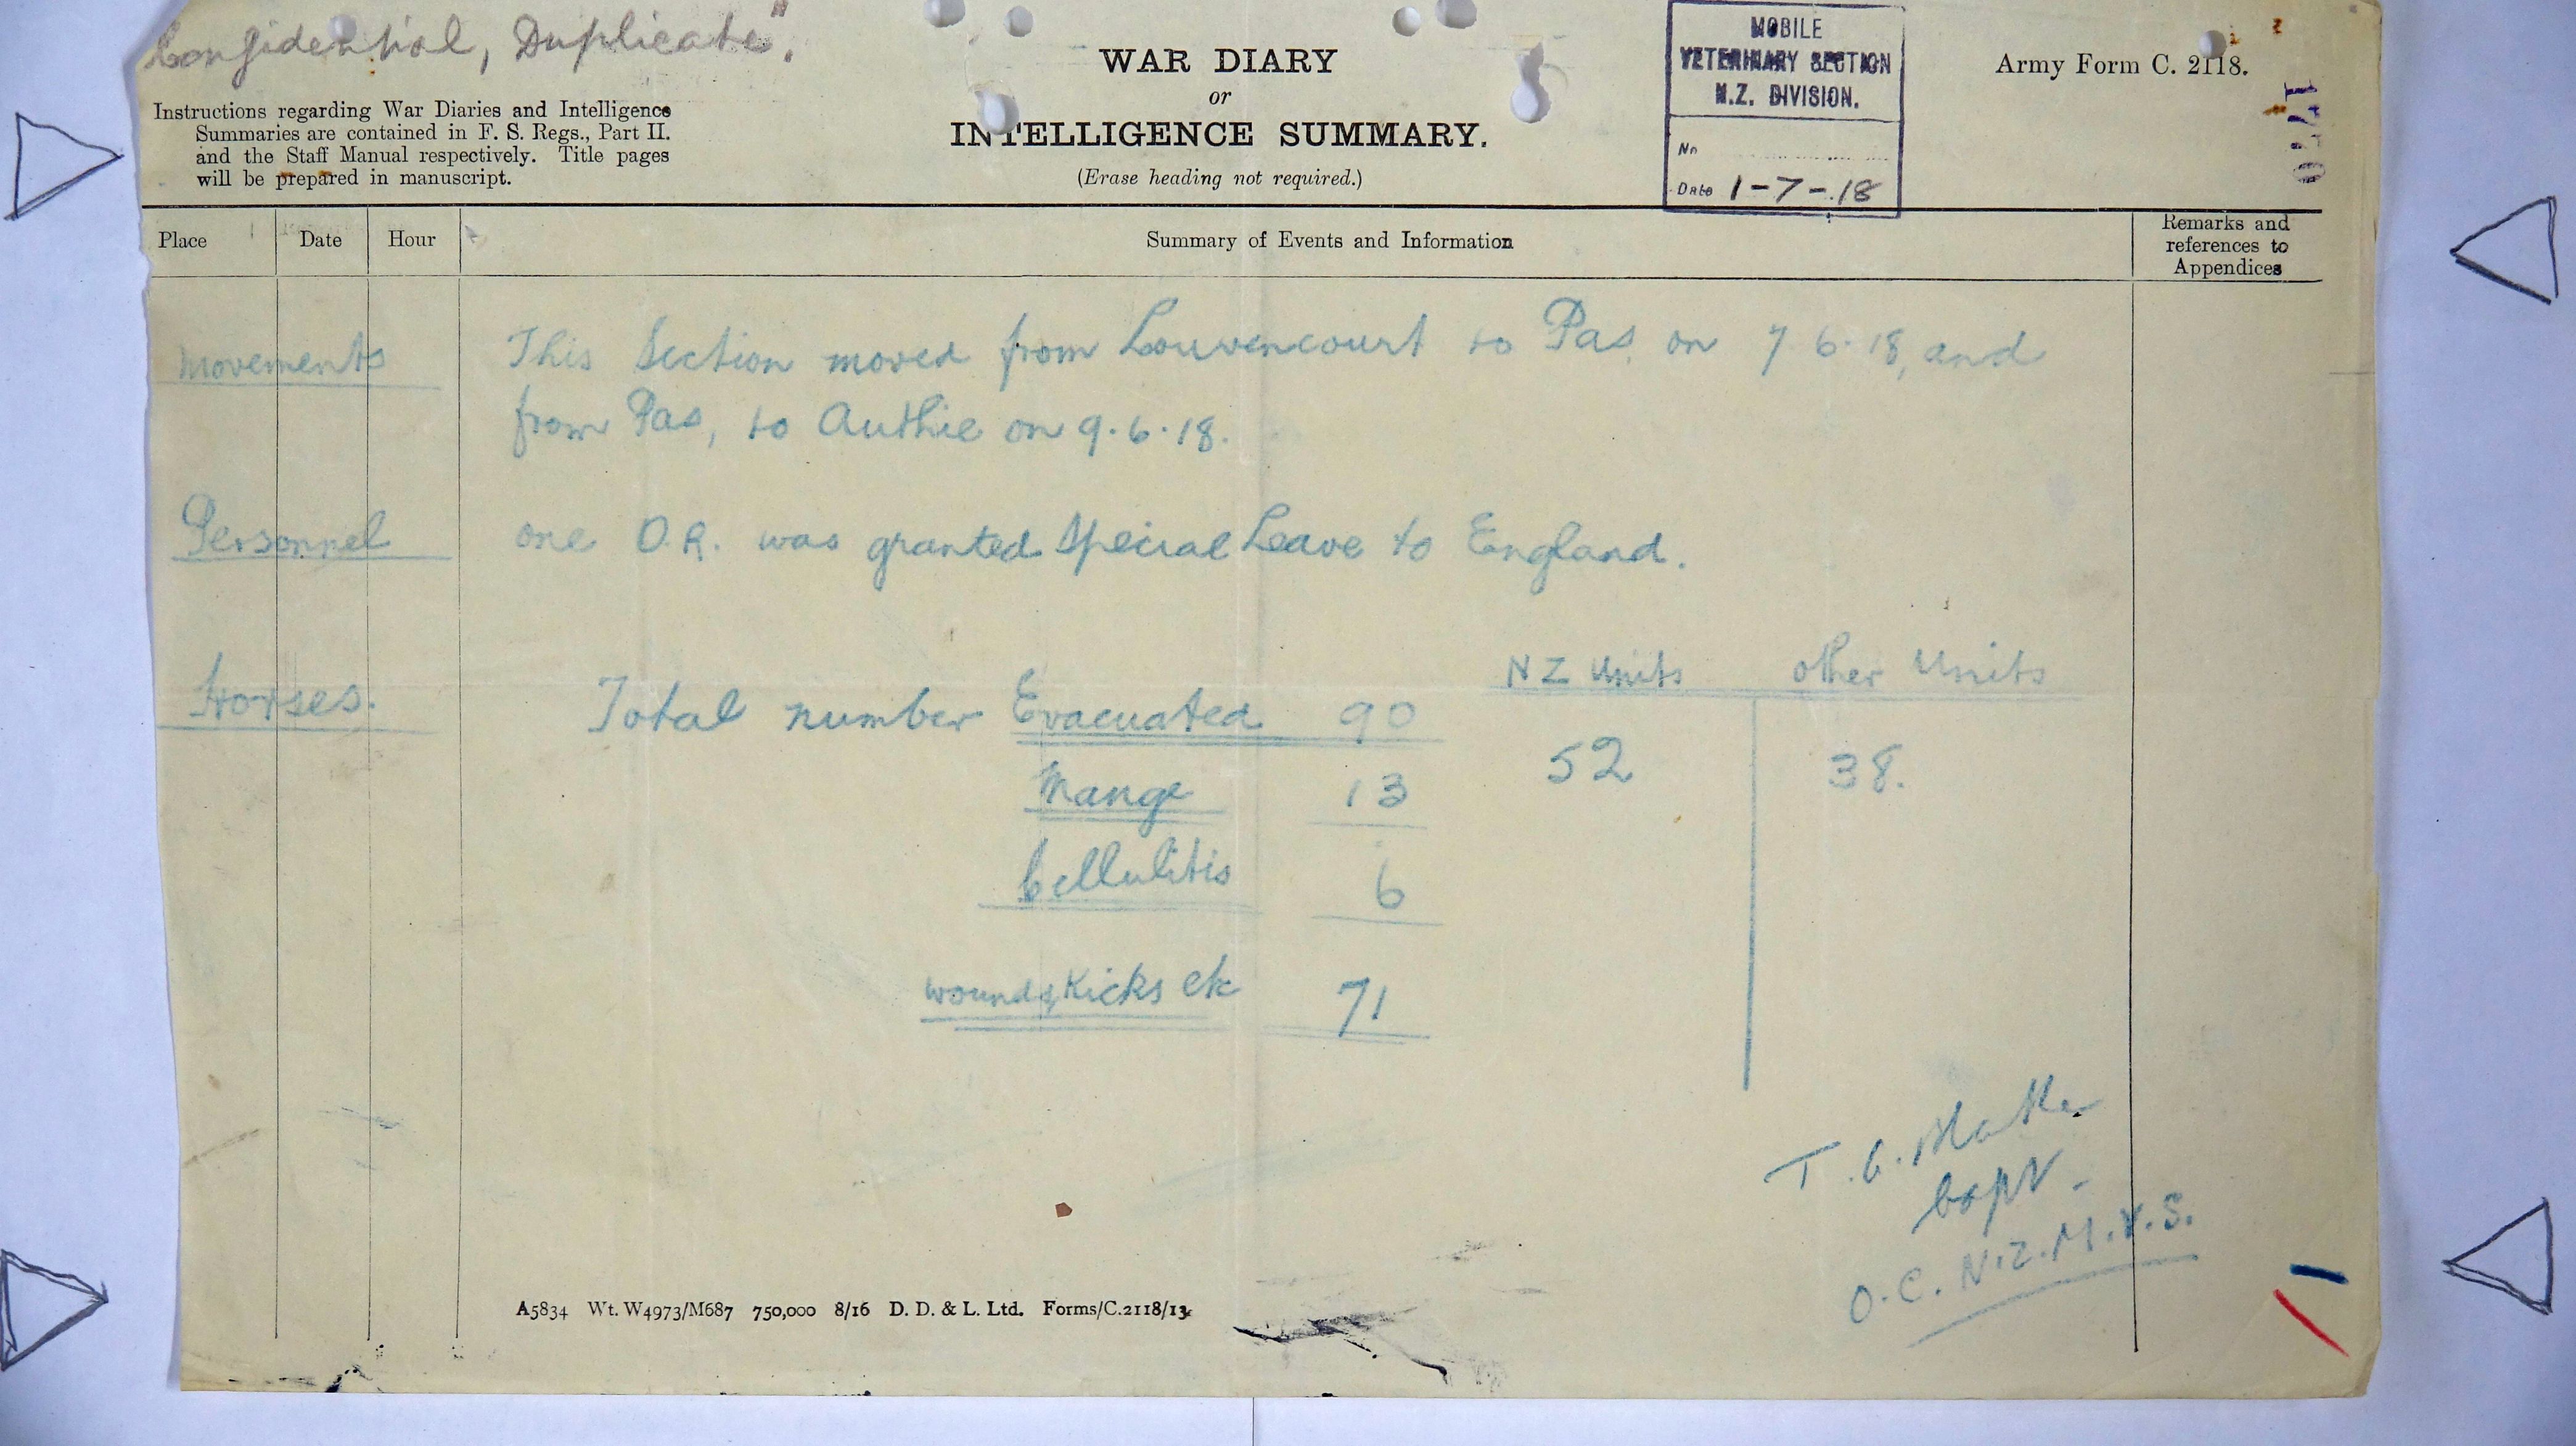 Confidential, Duplicate".
WAR DIARY
or
INTELLIGENCE SUMMARY.
(Erase heading not required.)
Instructions regarding War Diaries and Intelligence
Summaries are contained in F. S. Regs., Part II.
and the Staff Manual respectively. Title pages
will be prepared in manuscript.
MOBILE
VETERINARY SECTION
N.Z. DIVISION.
No
Date 1-7-18
Army Form C. 2118.
Place Date Hour Summary of Events and Information
Remarks and
references to
Appendices
Movements This Section moved from Louvencourt to Pas, on 7 6.18, and
from Pas, to Authie on 9.6.18.
Personnel one O.R. was granted Special Leave to England.
NZ Units other Units
Horses. Total number Evacuated 90
52 38.
Mange 13
Cellulitis 6
wounds, Kicks etc 71
T. C.
Capt.
O.C. N.Z.M.V.S.
A5834 Wt. W4973/M687 750,000 8/16 D. D. & L. Ltd. Forms/C.2118/13.